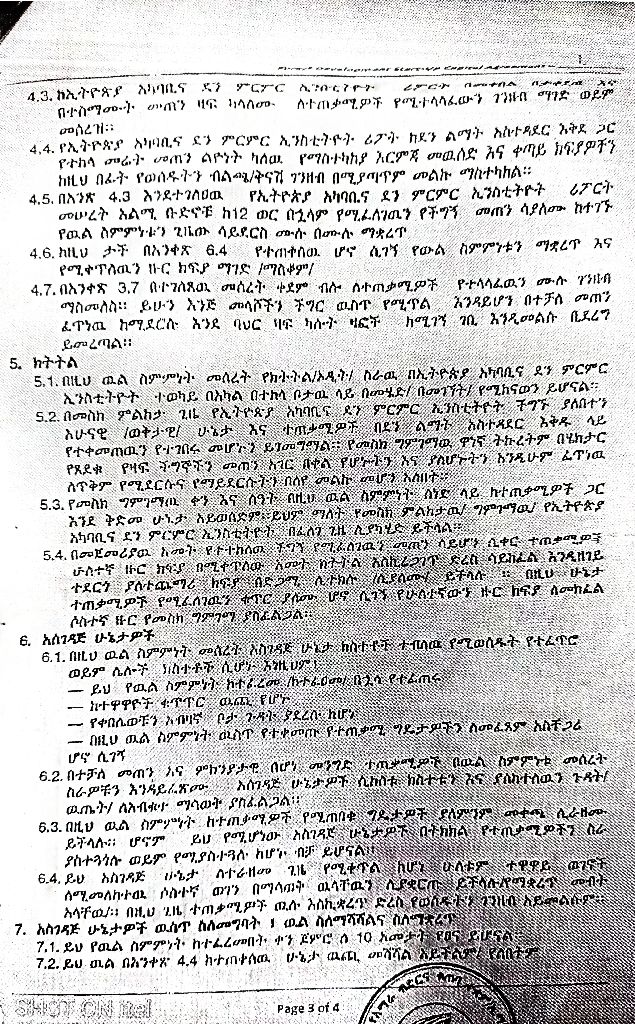 Forest Development Start-Up Capital Agreement
4.3. ከኢትዮጵያ አካባቢና ደን ምርምር ኢንስቲትዮት ሪፖርት በመቀበል በታቀደዉ እና
በተስማሙት መጠን ዛፍ ካላለሙ ለተጠቃሚዎች የሚተላላፈውን ገንዘብ ማገድ ወይም
መሰረዝ፡፡
4.4. የኢትዮጵያ አካባቢና ደን ምርምር ኢንስቲትዮት ሪፖት ከደን ልማት አስተዳደር እቅዱ ጋር
የተከላ መሬት መጠን ልዮነት ካለዉ የማስተካከያ እርምጃ መዉሰድ እና ቀጣይ ክፍያዎችን
ከዚህ በፊት የወሰዱትን ብልጫ/ቅናሽ ገንዘብ በሚያጣጥም መልኩ ማስተካከል፡፡
4.5. በአንቀጽ 4.3 እንደተገለፀዉ የኢትዮጵያ አካባቢና ደን ምርምር ኢንስቲትዮት ሪፖርት
መሠረት አልሚ ቡድኖቹ ከ12 ወር በኋላም የሚፈለገዉን የችግኝ መጠን ሳያለሙ ከተገኙ
የዉል ስምምነቱን ጊዜው ሳይደርስ ሙሉ በሙሉ ማቋረጥ
4.6. ከዚህ ታች በአንቀጽ 6.4 የተጠቀሰዉ ሆኖ ሲገኝ የውል ስምምነቱን ማቋረጥ እና
የሚቀጥለዉን ዙር ክፍያ ማገድ /ማስቆም/
4.7. በአንቀጽ 3.7 በተገለጸዉ መሰረት ቀደም ብሎ ለተጠቃሚዎች የተላላፈዉን ሙሉ ገንዘብ
ማስመለስ፡፡ ይሁን እንጅ መላሾችን ችግር ዉስጥ የሚጥል እንዳይሆን በተቻለ መጠን
ፈጥነዉ ከማደርሱ እንደ ባህር ዛፍ ካሉት ዛፎች ከሚገኝ ገቢ እንዲመልሱ ቢደረግ
ይመረጣል፡፡
5. ክትትል
5.1. በዚህ ዉል ስምምነት መሰረት የክትትል/ኦዲት/ ስራዉ በኢትዮጵያ አካባቢና ደን ምርምር
ኢንስቲትዮት ተወካይ በአካል በተከላ ቦታዉ ላይ በመሄድ/ በመገኘት/ የሚከናወን ይሆናል፡፡
5.2. በመስክ ምልከታ ጊዜ የኢትዮጵያ አካባቢና ደን ምርምር ኢንስቲትዮት ችግኙ ያለበትን
አሁናዊ /ወቅታዊ/ ሁኔታ እና ተጠቃሚዎች በደን ልማት አስተዳደር እቅዱ ላይ
የተቀመጠዉን የተገበሩ መሆኑን ይገመግማል፡፡ የመስክ ግምገማዉ ዋነኛ ትኩረትም በሄክታር
የጸደቁ የዛፍ ችግኞችን መጠን አገር በቀል የሆኑትን እና ያልሆኑትን እንዲሁም ፈጥነዉ
ለጥቅም የሚደርሱና የማይደርሱትን በለየ መልኩ መሆን አለበት፡፡
5.3. የመስክ ግምገማዉ ቀን እና ሰዓት በዚህ ዉል ስምምነት ሰነድ ላይ ከተጠቃሚዎች ጋር
እንደ ቅድመ ሁኔታ አይወሰድም፡፡ይህም ማለት የመስክ ምልከታዉ/ ግምገማዉ/ የኢትዮጵያ
አካባቢና ደን ምርምር ኢንስቲትዮት በፈለገ ጊዜ ሊያካሂድ ይችላል፡፡
5.4. በመጀመሪያዉ አመት የተተከለዉ ችግኝ የሚፈለገዉን መጠን ሳይሆን ሲቀር ተጠቃሚዎች
ሁለተኛ ዙር ክፍያ በሚቀጥለዉ አመት ክትትል እስኪረጋገጥ ድረስ ሳይከፈል እንዲዘገይ
ተደርጎ ያለተጨማሪ ክፍያ በድጋሚ ሊተክሉ /ሲያለሙ/ ይችላሉ ፡፡ በዚህ ሁኔታ
ተጠቃሚዎች የሚፈለገዉን ቁጥር ያለሙ ሆኖ ሲገኝ የሁለተኛውን ዙር ክፍያ ለመክፈል
ሶስተኛ ዙር የመስክ ግምገማ ያስፈልጋል፡፡
6. አስገዳጅ ሁኔታዎች
6.1. በዚህ ዉል ስምምነት መሰረት አስገዳጅ ሁኔታ ክስተቶች ተብለዉ የሚወሰዱት የተፈጥሮ
ወይም ሌሎች ክስተቶች ሲሆኑ እነዚህም፤
— ይህ የዉል ስምምነት ከተፈረመ /ከተፈፀመ/ በኋላ የተፈጠሩ
— ከተዋዋዮች ቁጥጥር ዉጪ የሆኑ
— የቀበሌወቹን አብዛኛ ቦታ ጉዳት ያደረሰ ከሆነ
— በዚህ ዉል ስምምነት ዉስጥ የተቀመጡ የተጠቃሚ ግዴታዎችን ለመፈጸም አስቸጋሪ
ሆኖ ሲገኝ
6.2. በተቻለ መጠን እና ምክንያታዊ በሆነ መንገድ ተጠቃሚዎች በዉል ስምምነቱ መሰረት
ስራዎቹን እንዳይፈጽሙ አስገዳጅ ሁኔታዎች ሲከሰቱ ክስተቱን እና ያስከተለዉን ጉዳት/
ዉጤት/ ለአብቁተ ማሳወቅ ያስፈልጋል፡፡
6.3. በዚህ ዉል ስምምነት ከተጠቃሚዎች የሚጠበቁ ግዴታዎች ያለምንም መቀጫ ሊራዘሙ
ይችላሉ፡፡ ሆኖም ይህ የሚሆነው አስገዳጅ ሁኔታዎች በትክክል የተጠቃሚዎችን ስራ
ያስተጓጎሉ ወይም የሚያስተጓጉሉ ከሆነ ብቻ ይሆናል፡፡
6.4. ይህ አስገዳጅ ሁኔታ ለተራዘመ ጊዜ የሚቀጥል ከሆነ ሁለቱም ተዋዋይ ወገኖች
ለሚመለከተዉ ሶስተኛ ወገን በማሳወቅ ዉላቸዉን ሊያቋርጡ ይችላሉ/የማቋረጥ መብት
አላቸዉ/፡፡ በዚህ ጊዜ ተጠቃሚዎች ዉሉ እስኪቋረጥ ድረስ የወሰዱትን ገንዘብ አይመልሱም፡፡
7. አስገዳጅ ሁኔታዎች ዉስጥ ስለመግባት ፤ ዉል ስለማሻሻልና ስለማቋረጥ
7.1. ይህ የዉል ስምምነት ከተፈረመበት ቀን ጀምሮ ለ 10 አመታት የፀና ይሆናል፡፡
7.2. ይህ ዉል በአንቀጽ 4.4 ከተጠቀሰዉ ሁኔታ ዉጪ መሻሻል አይችልም/ የለበትም
SHOT ON itel
Page 3 of 4